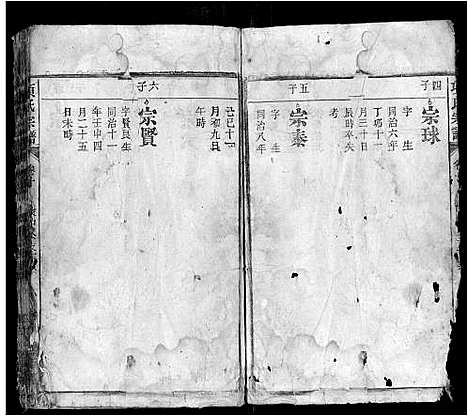 四子
宗球
字 生
同治六年
丁卯十一
月三十日
辰時卒失
考
五子
宗泰
字 生
同治八年
己巳十一
月初九日
午時
六子
宗賢
字賢良生
同治十一
年壬申四
月二十五
日未時
項氏宗譜